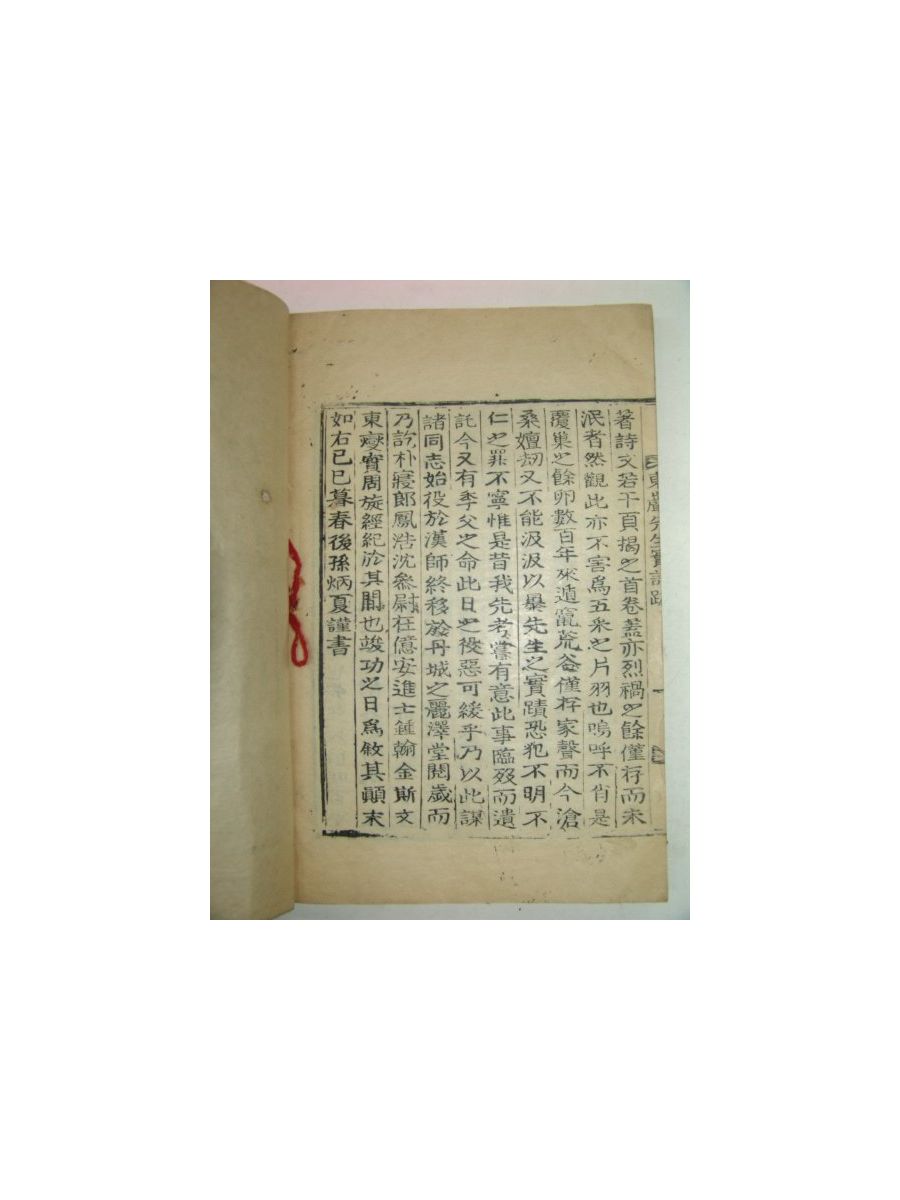 東巖先生實記跋
著詩文若干頁揭之首卷蓋亦烈禍之餘僅存而未
泯者然觀此亦不害爲五采之片羽也嗚呼不肖是
覆巢之餘卵數百年來遁竄荒谷僅存家聲而今滄
桑嬗刼又不能汲汲以暴先生之實蹟恐犯不明不
仁之罪不寧惟是昔我先考嘗有意此事臨歿而遺
託今又有季父之命此日之役惡可緩乎乃以此謀
諸同志始役於漢師終移於丹城之麗澤堂閱歲而
乃訖朴寢郎鳳浩沈參尉在億安進士鍾翰金斯文
東燮實周旋經紀於其間也竣功之日爲敘其顚末
如右己巳暮春後孫炳夏謹書